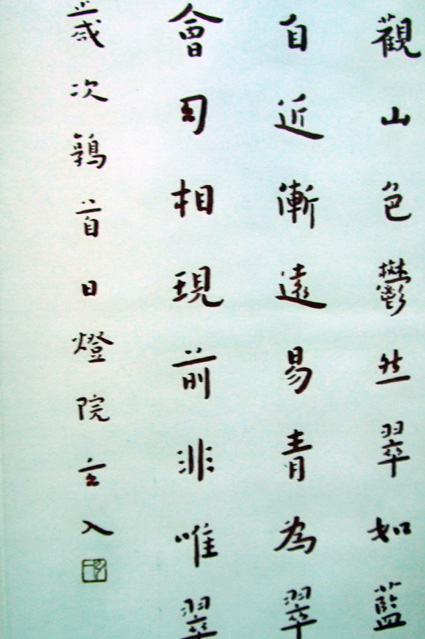 觀山色鬱然翠如藍
自近漸遠易青為翠
會司相現前非唯翠
歲次鶉首日燈院主人